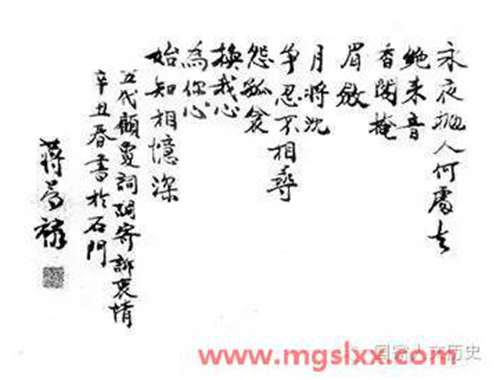 永夜抛人何處去
絕来音
香閣掩
眉斂
月將沈
争忍不相尋
怨孤衾
換我心
為你心
始知相憶深
五代顧敻詞調寄訴衷情
辛丑春書於石門
蔣
国家人文历史
www.mgslxx.com